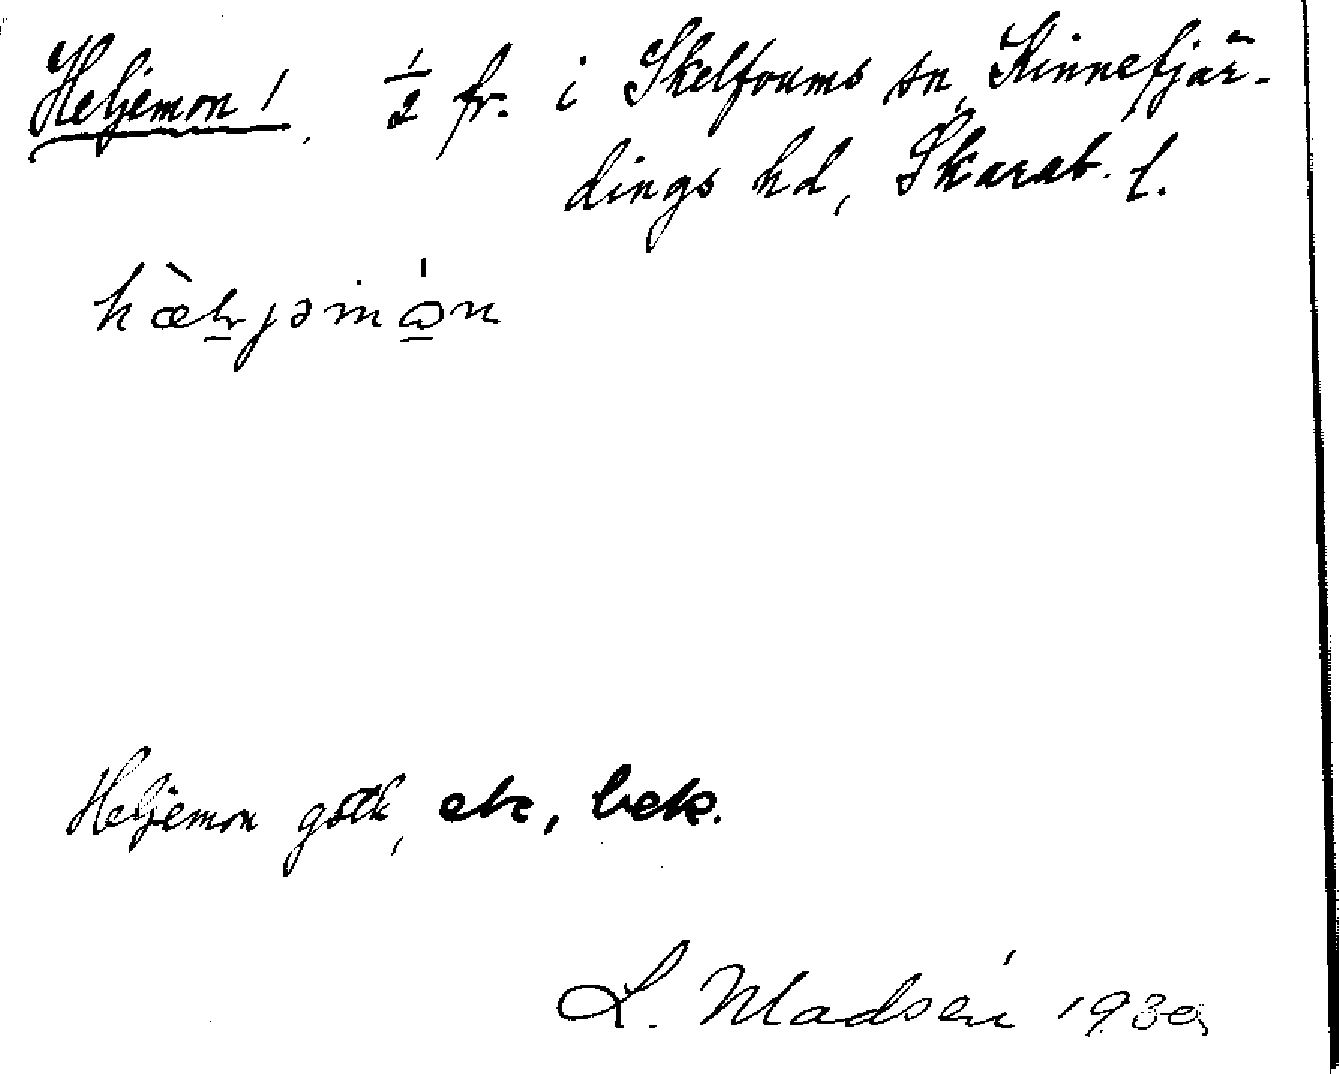 Heljemon! 1/2 fr. i Skelfvums sn, Kinnefjär-
dings hd, Skarab. l.
Heljemon gdk, ek, bek.
L. Madsén 1939